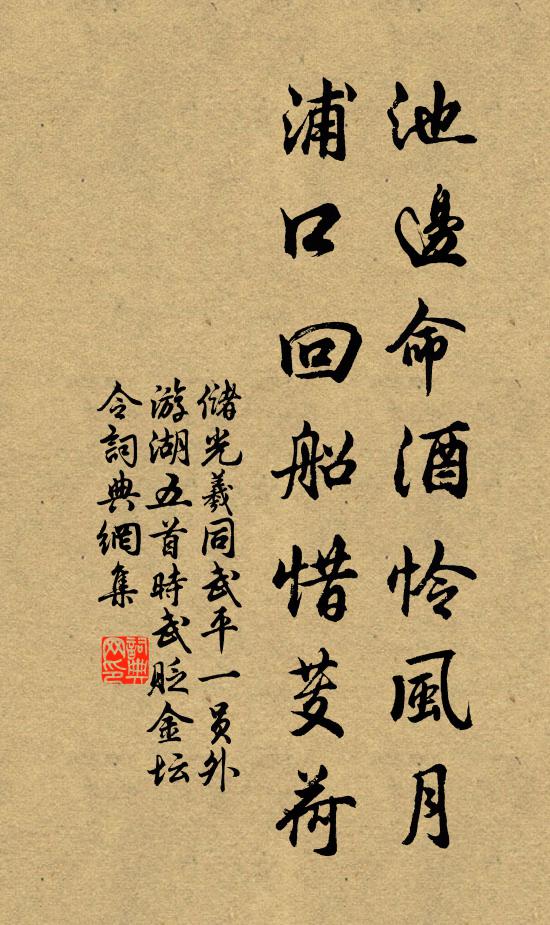 池邊命酒怜風月
浦口回船惜芰荷
儲光羲同武平一員外
游湖五首時武貶金坛
令詞典網集
詞典
网印